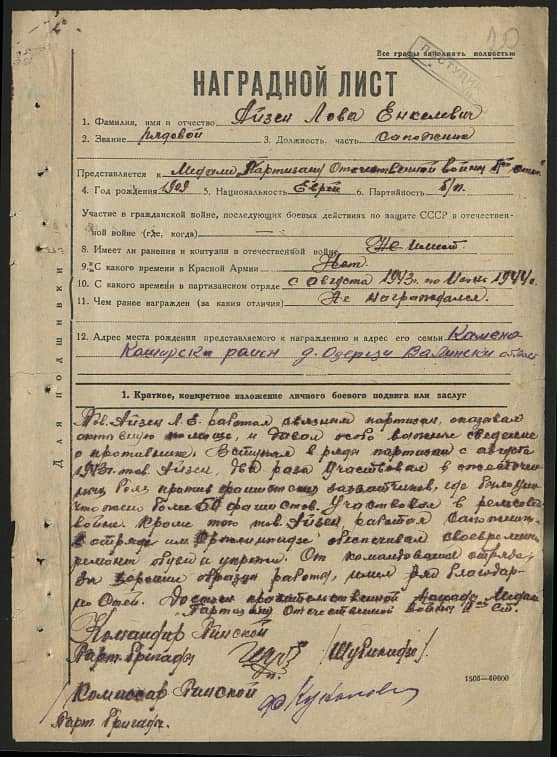 Все графы заполнять полностью
НАГРАДНОЙ ЛИСТ
1. Фамилия, имя и отчество Айзен Лова Енкелевич
2. Звание рядовой 3. Должность, часть сапожник
Представляется к Медали "Партизану Отечественной войны II степ.
4. Год рождения 1909 5. Национальность Еврей 6. Партийность б/п.
Участие в гражданской войне, последующих боевых действиях по защите СССР в отечествен-
ной войне (где, когда) —
8. Имеет ли ранения и контузии в отечественной войне Не имеет
9. С какого времени в Красной Армии Нет
10. С какого времени в партизанском отряде с августа 1943г. по Июль 1944г.
11. Чем ранее награжден (за какие отличия) Не награждался.
12. Адрес места рождения представляемого к награждению и адрес его семьи Камено
Коширски район д.
Для подшивки
1. Краткое, конкретное изложение личного боевого подвига или заслуг
Тов. Айзен Л.Е. работал связным партизан, оказывал
активную помощь, и давал особо важные сведение
о противнике. Вступил в ряды партизан с августа
тов. Айзен, два раза участвовал в
боях против фашистских захватчиков, где было уни
чтожено более 50 фашистов. Участвовал в рельсовой
войне. Кроме того тов. Айзен, работал сапожник
в отряде им. обеспечивал своевремен
ремонт обуви и упряжи. От командования отряда
за хорошие образцы работы, имел ряд благодар-
ностей. Достоин правительственной награды Медали
"Партизану Отечественной войны II ст.
Командир Пинской
Парт. Бригады /Шубитидзе/.
Комиссар Пинской
Парт. Бригады.
1505—40000